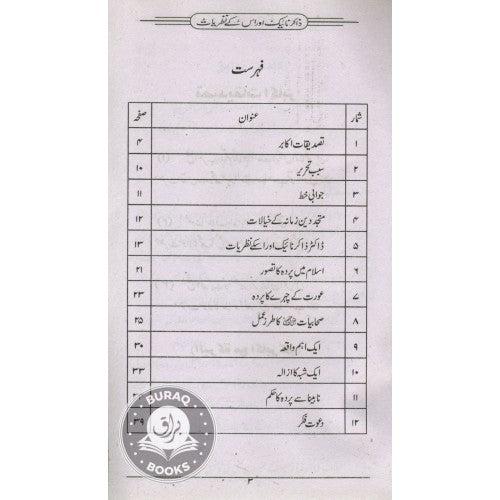 ذاکر نائیک اور اس کے نظریات
فہرست
شمار عنوان صفحہ
۱ تصدیقات اکابر ۴
۲ سبب تحریر ۱۰
۳ جوابی خط ۱۱
۴ متجددین زمانہ کے خیالات ۱۲
۵ ڈاکٹر ذاکر نائیک اور اسکے نظریات ۱۳
۶ اسلام میں پردہ کا تصور ۲۱
۷ عورت کے چہرے کا پردہ ۲۳
۸ صحابیات کا طرز عمل ۲۵
۹ ایک اہم واقعہ ۳۰
۱۰ ایک شبہ کا ازالہ ۳۳
۱۱ نابینا سے پردہ کا حکم
۱۲ دعوت فکر ۳۹
BURAQ
براق
BOOKS
۳